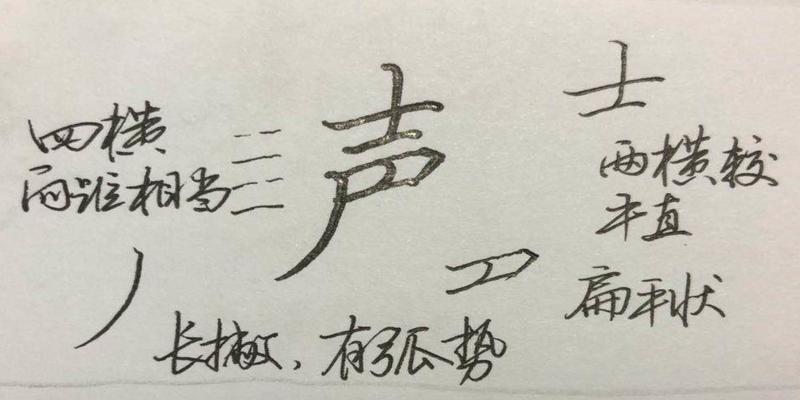 四横
距离相当
声
士
两横较
平直
扁平状
长撇、有弧势